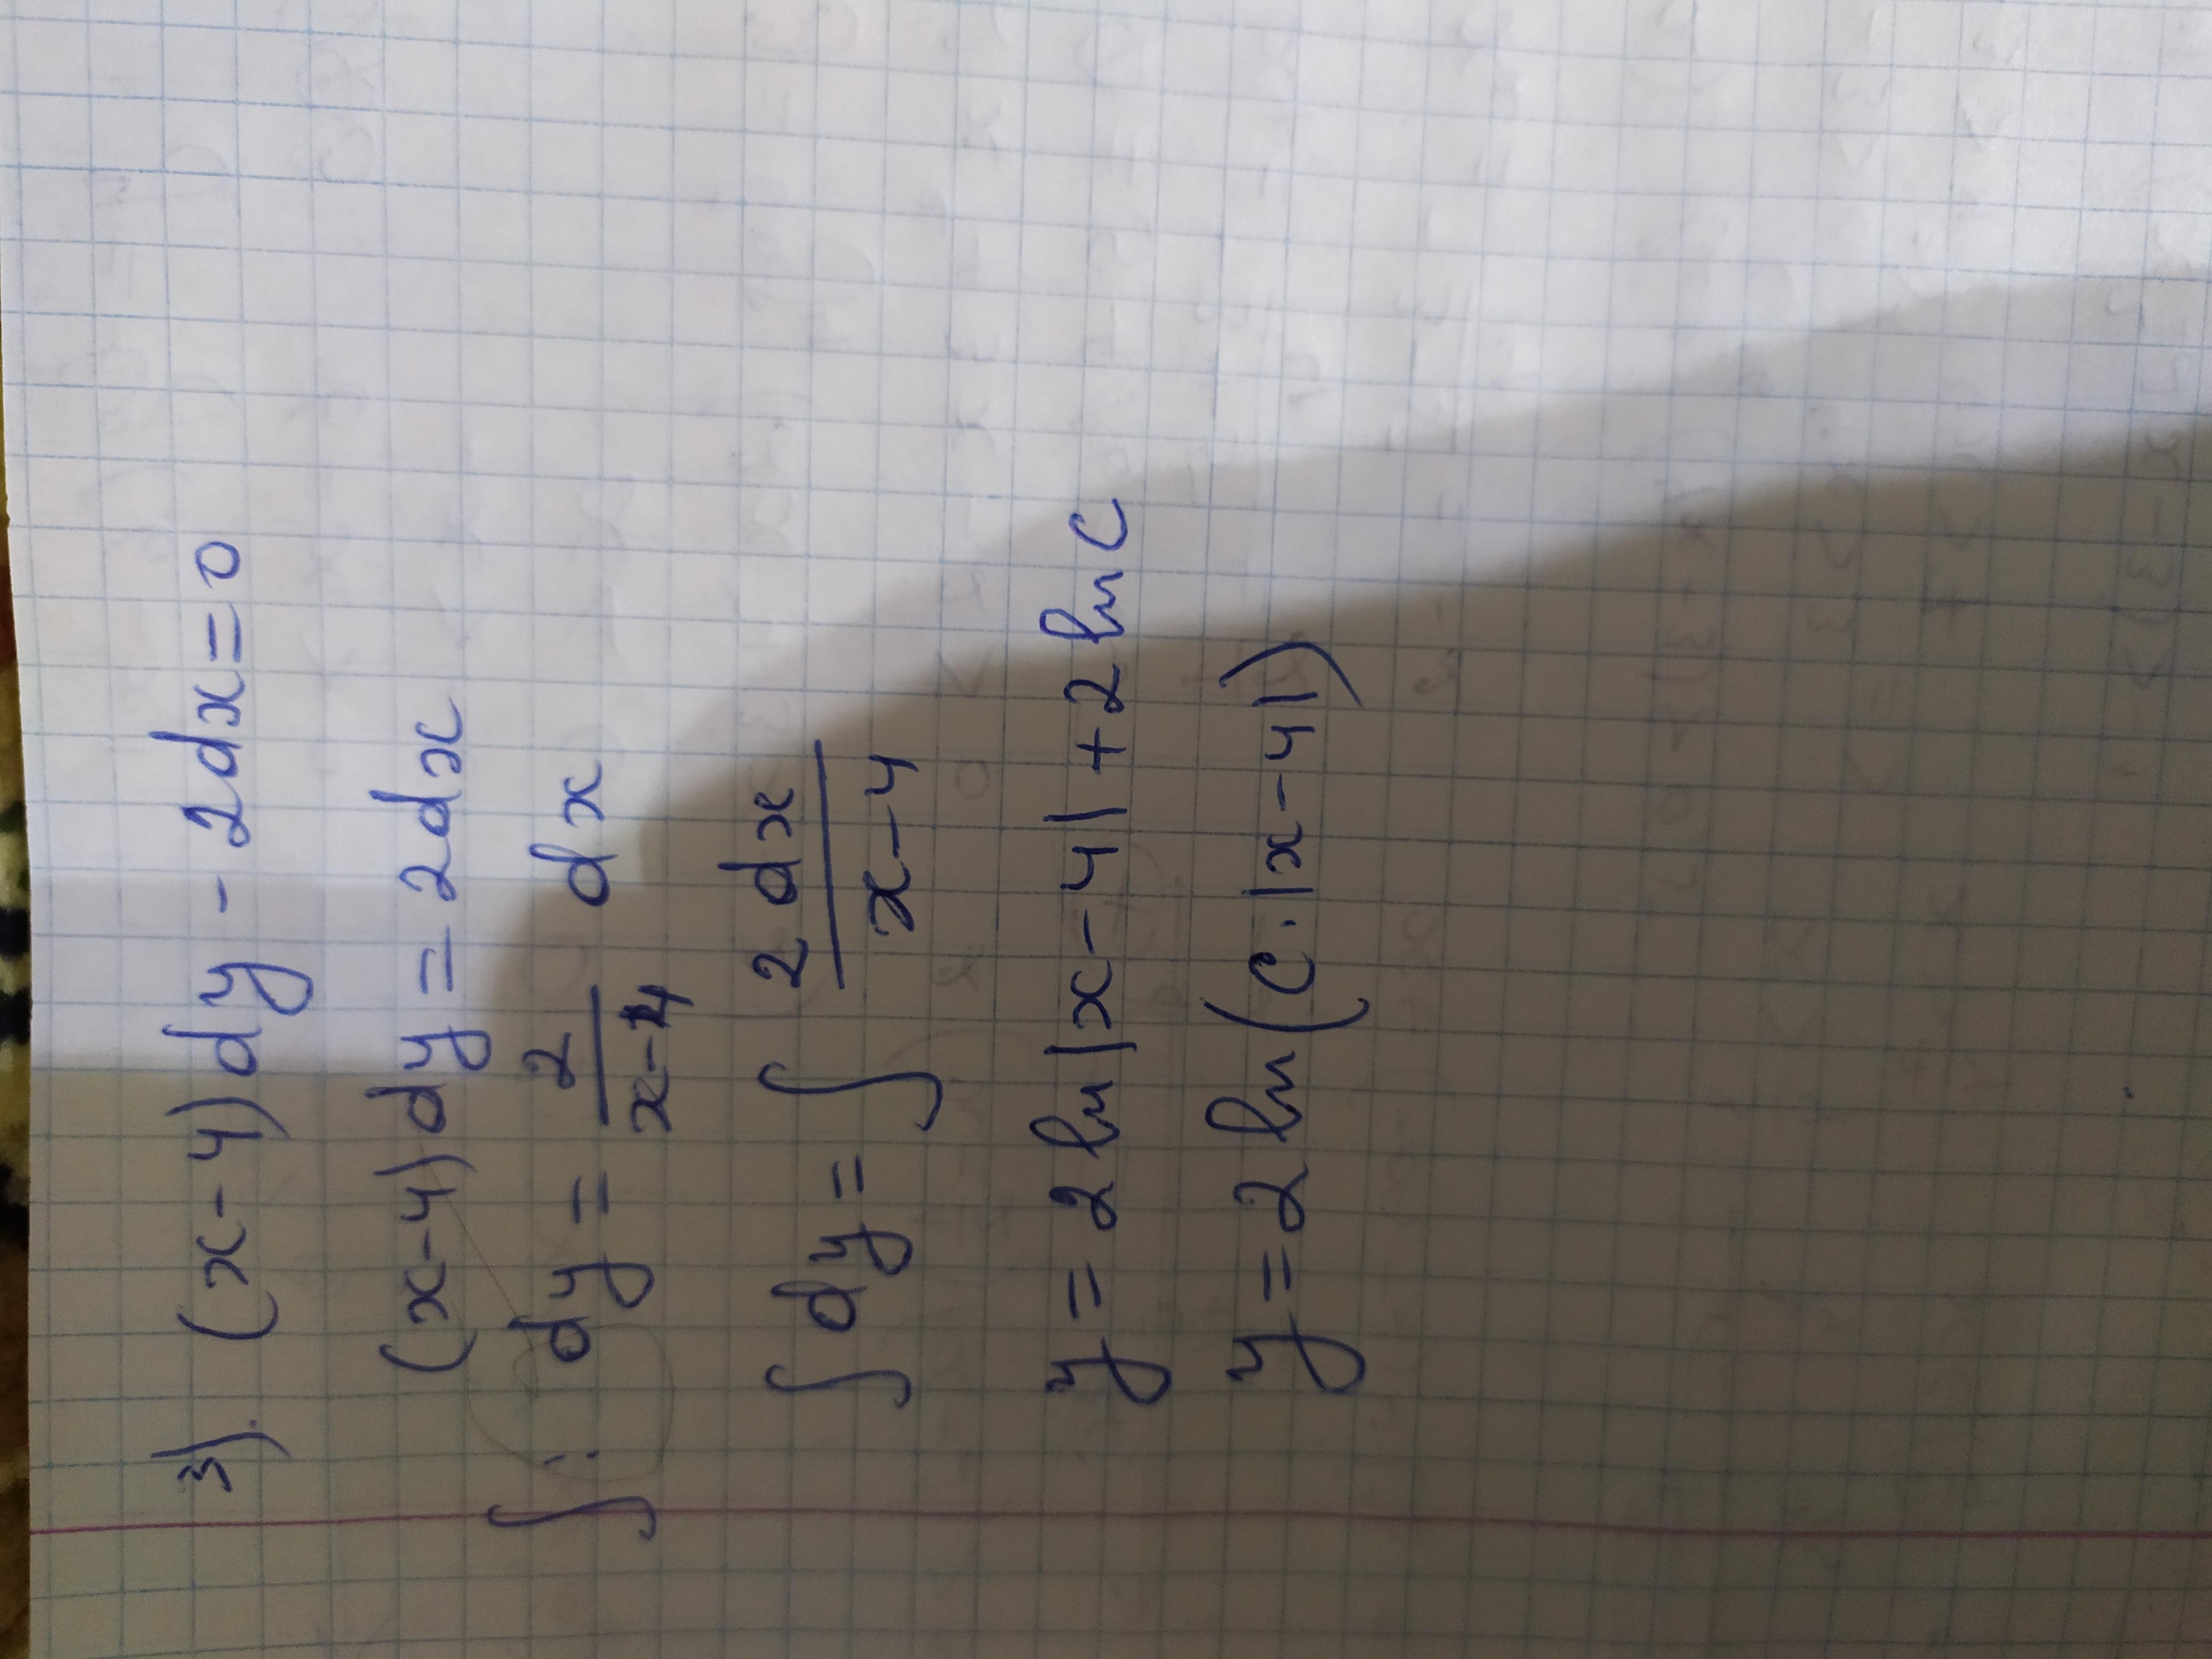 3). (x-4)dy - 2dx=0
(x-4)dy = 2dx
∫: dy = 2/(x-4) dx
∫dy = ∫ 2dx/(x-4)
y = 2 ln|x-4| + 2 ln C
y = 2 ln(C·|x-4|)